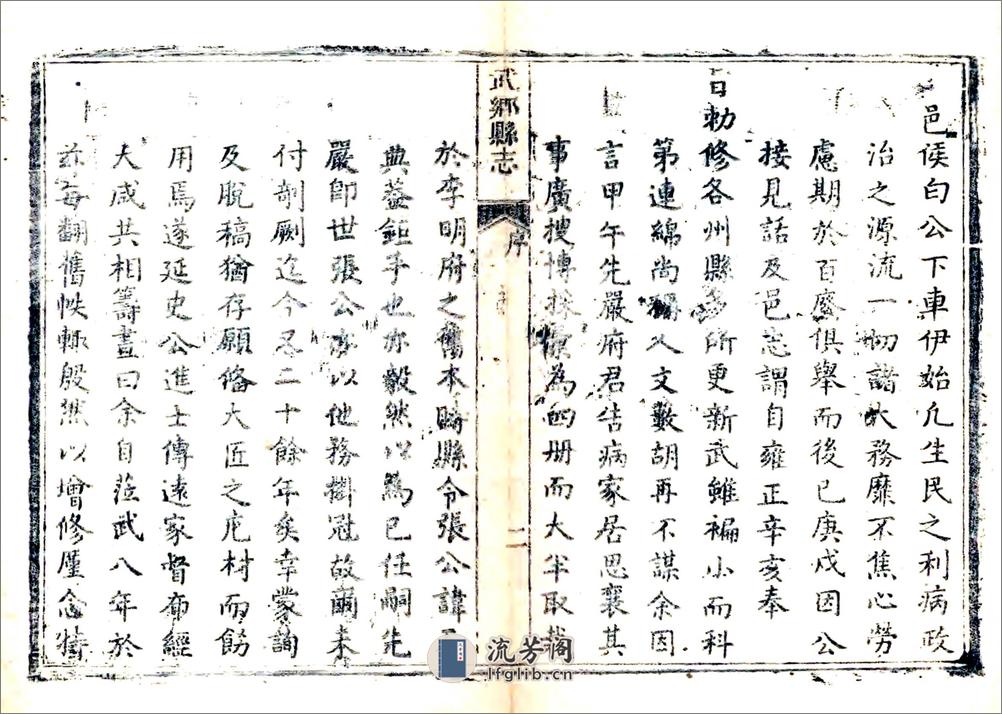 邑侯白公下車伊始凢生民之利病政
治之源流一切諸大務靡不焦心勞
慮期於百廢俱舉而後已庚戌因公
接見話及邑志謂自雍正辛亥奉
旨勅修各州縣多所更新武雖褊小而科
第連綿尚稱人文藪胡再不謀余因
言甲午先嚴府君告病家居思襄其
事廣搜博採彙為四册而大半取裁
武鄉縣志
序
二
於李明府之舊本時縣令張公諱
典蓋鉅手也亦毅然以為已任嗣先
嚴即世張公亦以他務掛冠故爾未
付剞劂迄今忽二十餘年矣幸蒙詢
及脫稿猶存願俻大匠之庀材而飭
用焉遂延史公進士傳遠家督布經
大咸共相籌畫曰余自蒞武八年於
茲每翻舊帙輙殷然以增修厪念特
流芳閣
lfglib.cn